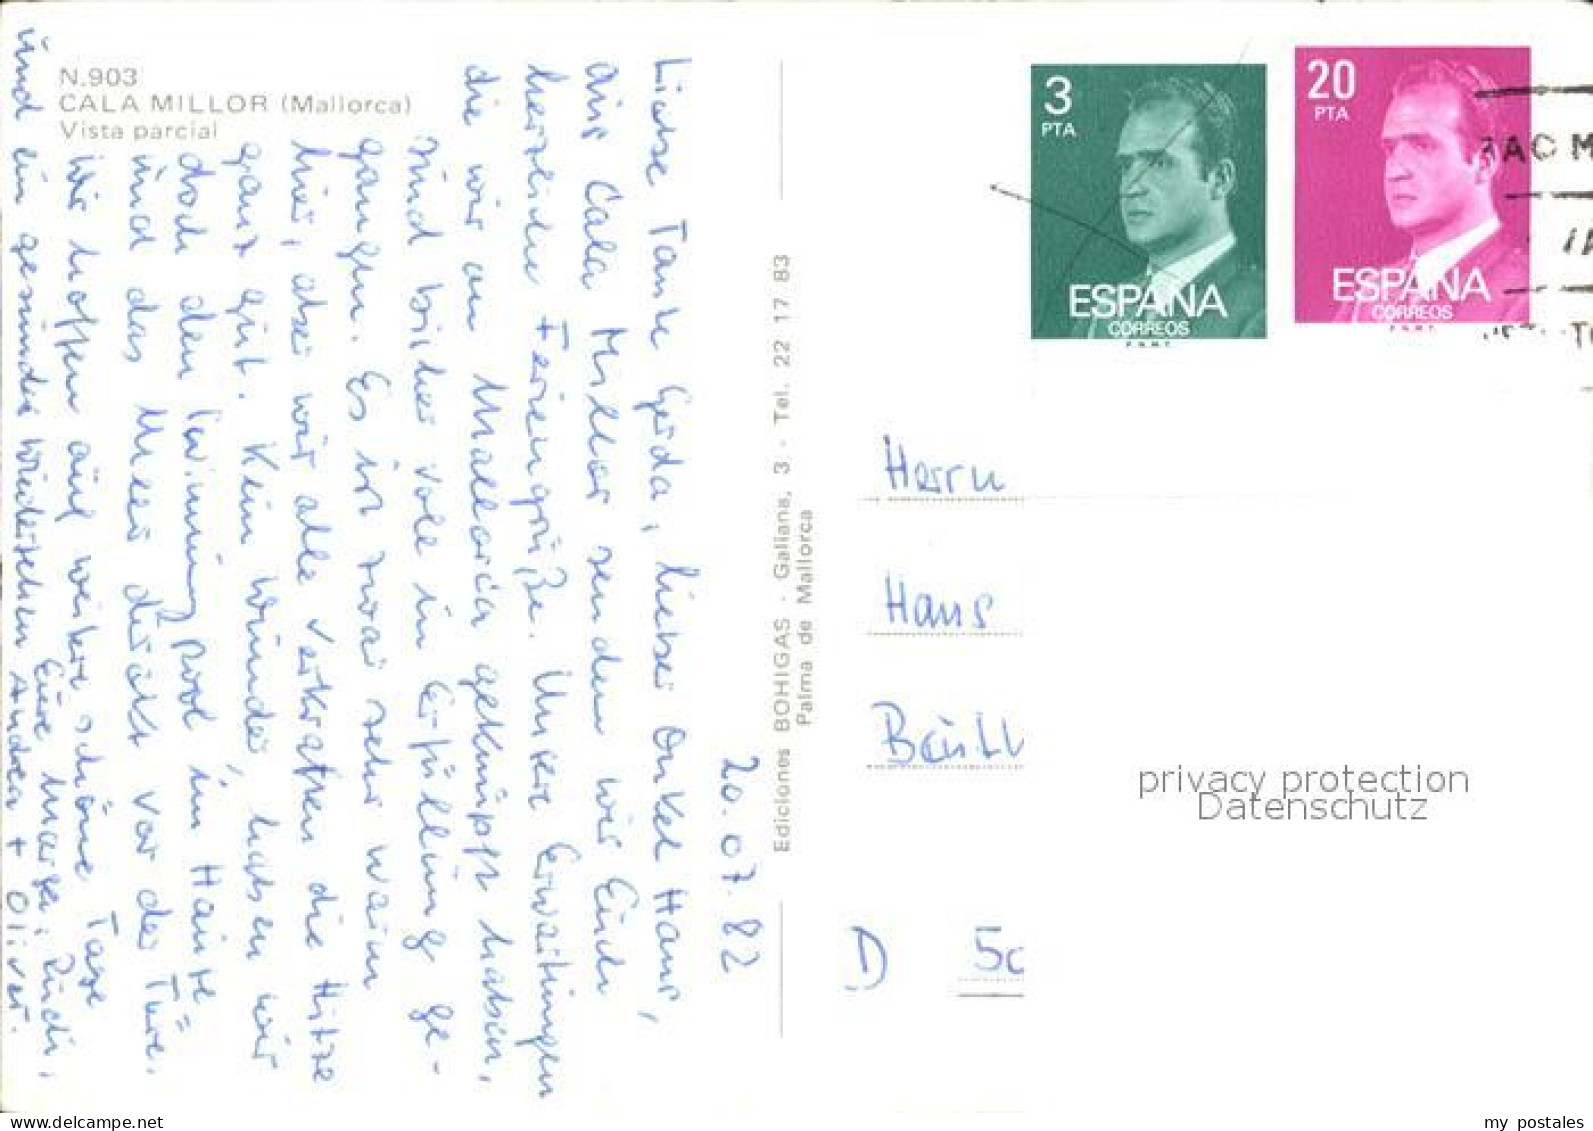 N.903
CALA MILLOR (Mallorca)
Vista parcial
20.07.82
Liebe Tante Gerda, lieber Onkel Hans,
aus Cala Millor senden wir Euch
herzliche Feriengrüße. Unsere Erwartungen
die wir an Mallorca geknüpft haben,
sind bisher voll in Erfüllung ge-
gangen. Es ist zwar sehr warm
hier, aber wir alle verkraften die Hitze
ganz gut. Kein Wunder, haben wir
doch den Swimmingpool im Hause
und das Meer direkt vor der Türe.
Wir hoffen auf weitere schöne Tage
und ein gesundes Wiedersehen
Eure Marga, Rudi,
Andrea + Oliver.
Ediciones BOHIGAS - Galiana, 3 - Tel. 22 17 83
Palma de Mallorca
3
PTA
ESPAÑA
CORREOS
F.N.M.T.
20
PTA
ESPAÑA
CORREOS
F.N.M.T.
Herrn
Hans
D 50
privacy protection
Datenschutz
my postales